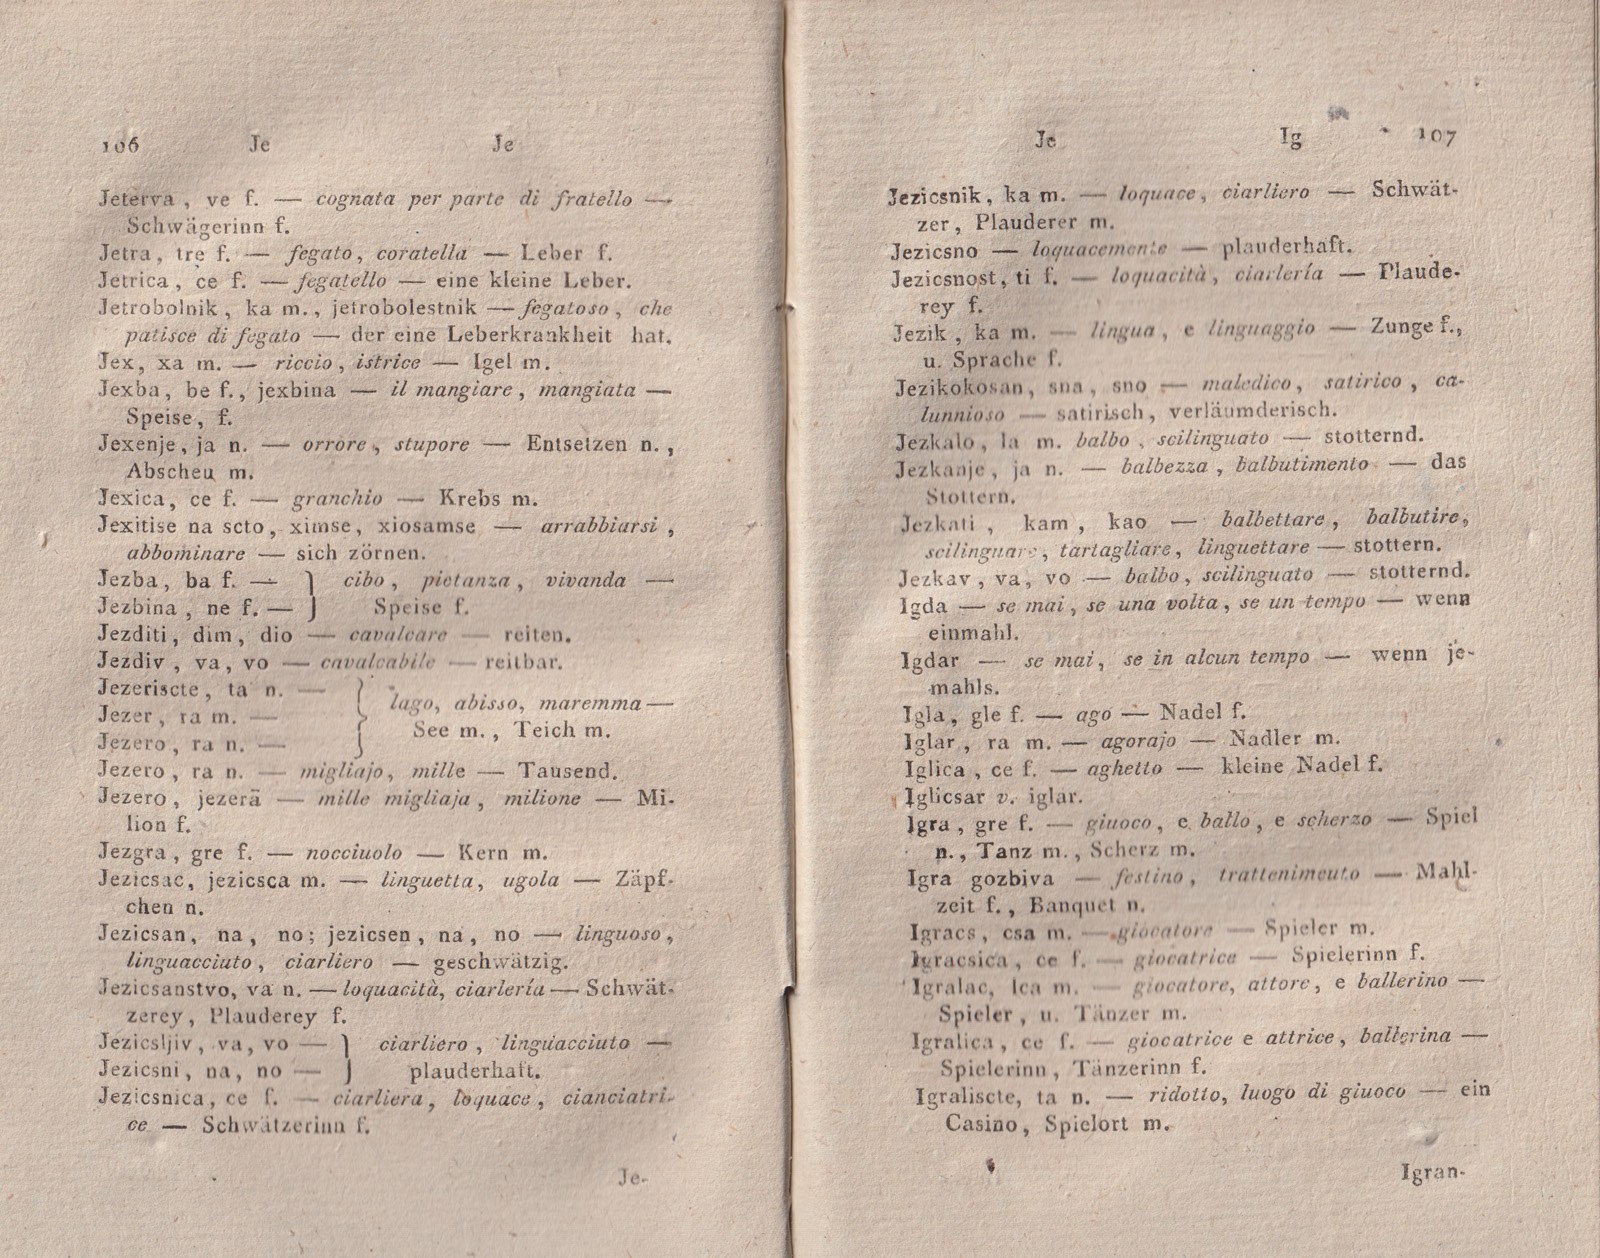 106 Je Je
Jeterva , ve f. — cognata per parte di fratello —
Schwägerinn f.
Jetra, tre f. — fegato, coratella — Leber f.
Jetrica, ce f. — fegatello — eine kleine Leber.
Jetrobolnik, ka m., jetrobolestnik — fegatoso, che
patisce di fegato — der eine Leberkrankheit hat.
Jex, xa m. — riccio, istrice — Igel m.
Jexba, be f., jexbina — il mangiare, mangiata —
Speise, f.
Jexenje, ja n. — orrore, stupore — Entsetzen n.,
Abscheu m.
Jexica, ce f. — granchio — Krebs m.
Jexitise na scto, ximse, xiosamse — arrabbiarsi,
abbominare — sich zörnen.
Jezba, ba f. — } cibo, pietanza, vivanda —
Jezbina, ne f. — } Speise f.
Jezditi, dim, dio — cavalcare — reiten.
Jezdiv, va, vo — cavalcabile — reitbar.
Jezeriscte, ta n. — } lago, abisso, maremma —
Jezer, ra m. — } See m., Teich m.
Jezero, ra n. — }
Jezero, ra n. — migliajo, mille — Tausend.
Jezero, jezerä — mille migliaja, milione — Mi-
lion f.
Jezgra, gre f. — nocciuolo — Kern m.
Jezicsac, jezicsca m. — linguetta, ugola — Zäpf-
chen n.
Jezicsan, na, no; jezicsen, na, no — linguoso,
linguacciuto, ciarliero — geschwätzig.
Jezicsanstvo, va n. — loquacità, ciarlería — Schwät-
zerey, Plauderey f.
Jezicsljiv, va, vo — } ciarliero, linguacciuto —
Jezicsni, na, no — } plauderhaft.
Jezicsnica, ce f. — ciarliera, loquace, cianciatri-
ce — Schwätzerinn f.
Je-
Je Ig 107
Jezicsnik, ka m. — loquace, ciarliero — Schwät-
zer, Plauderer m.
Jezicsno — loquacemente — plauderhaft.
Jezicsnost, ti f. — loquacità, ciarlería — Plaude-
rey f.
Jezik, ka m. — lingua, e linguaggio — Zunge f.,
u. Sprache f.
Jezikokosan, sna, sno — maledico, satirico, ca-
lunnioso — satirisch, verläumderisch.
Jezkalo, la m. balbo, scilinguato — stotternd.
Jezkanje, ja n. — balbezza, balbutimento — das
Stottern.
Jezkati, kam, kao — balbettare, balbutire,
scilinguare, tartagliare, linguettare — stottern.
Jezkav, va, vo — balbo, scilinguato — stotternd.
Igda — se mai, se una volta, se un tempo — wenn
einmahl.
Igdar — se mai, se in alcun tempo — wenn je-
mahls.
Igla, gle f. — ago — Nadel f.
Iglar, ra m. — agorajo — Nadler m.
Iglica, ce f. — aghetto — kleine Nadel f.
Iglicsar v. iglar.
Igra, gre f. — giuoco, e ballo, e scherzo — Spiel
n., Tanz m., Scherz m.
Igra gozbiva — festino, trattenimeuto — Mahl-
zeit f., Banquet n.
Igracs, csa m. — giocatore — Spieler m.
Igracsica, ce f. — giocatrice — Spielerinn f.
Igralac, lca m. — giocatore, attore, e ballerino —
Spieler, u. Tänzer m.
Igralica, ce f. — giocatrice e attrice, ballerina —
Spielerinn, Tänzerinn f.
Igraliscte, ta n. — ridotto, luogo di giuoco — ein
Casino, Spielort m.
Igran-